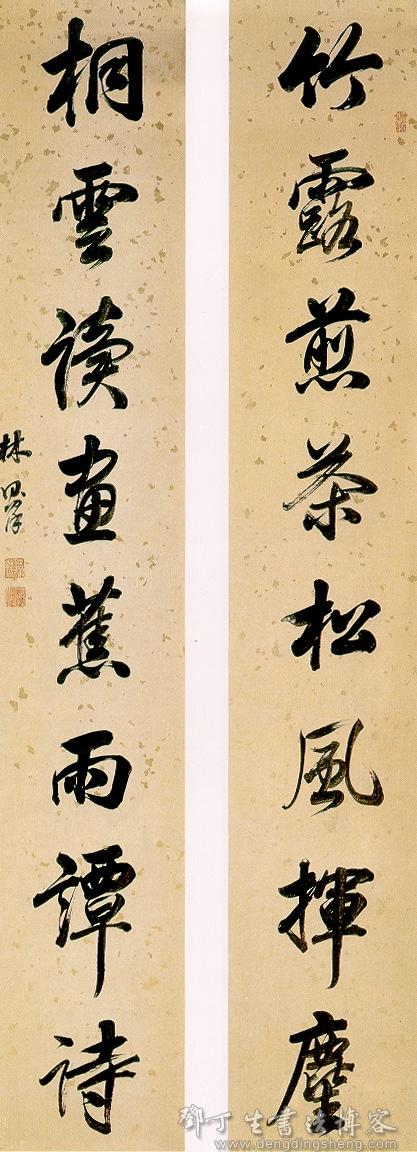 竹露煎茶松風揮麈
桐雲讀畫蕉雨譚詩
林則徐
鄧丁生書法博客
www.dengdingsheng.com